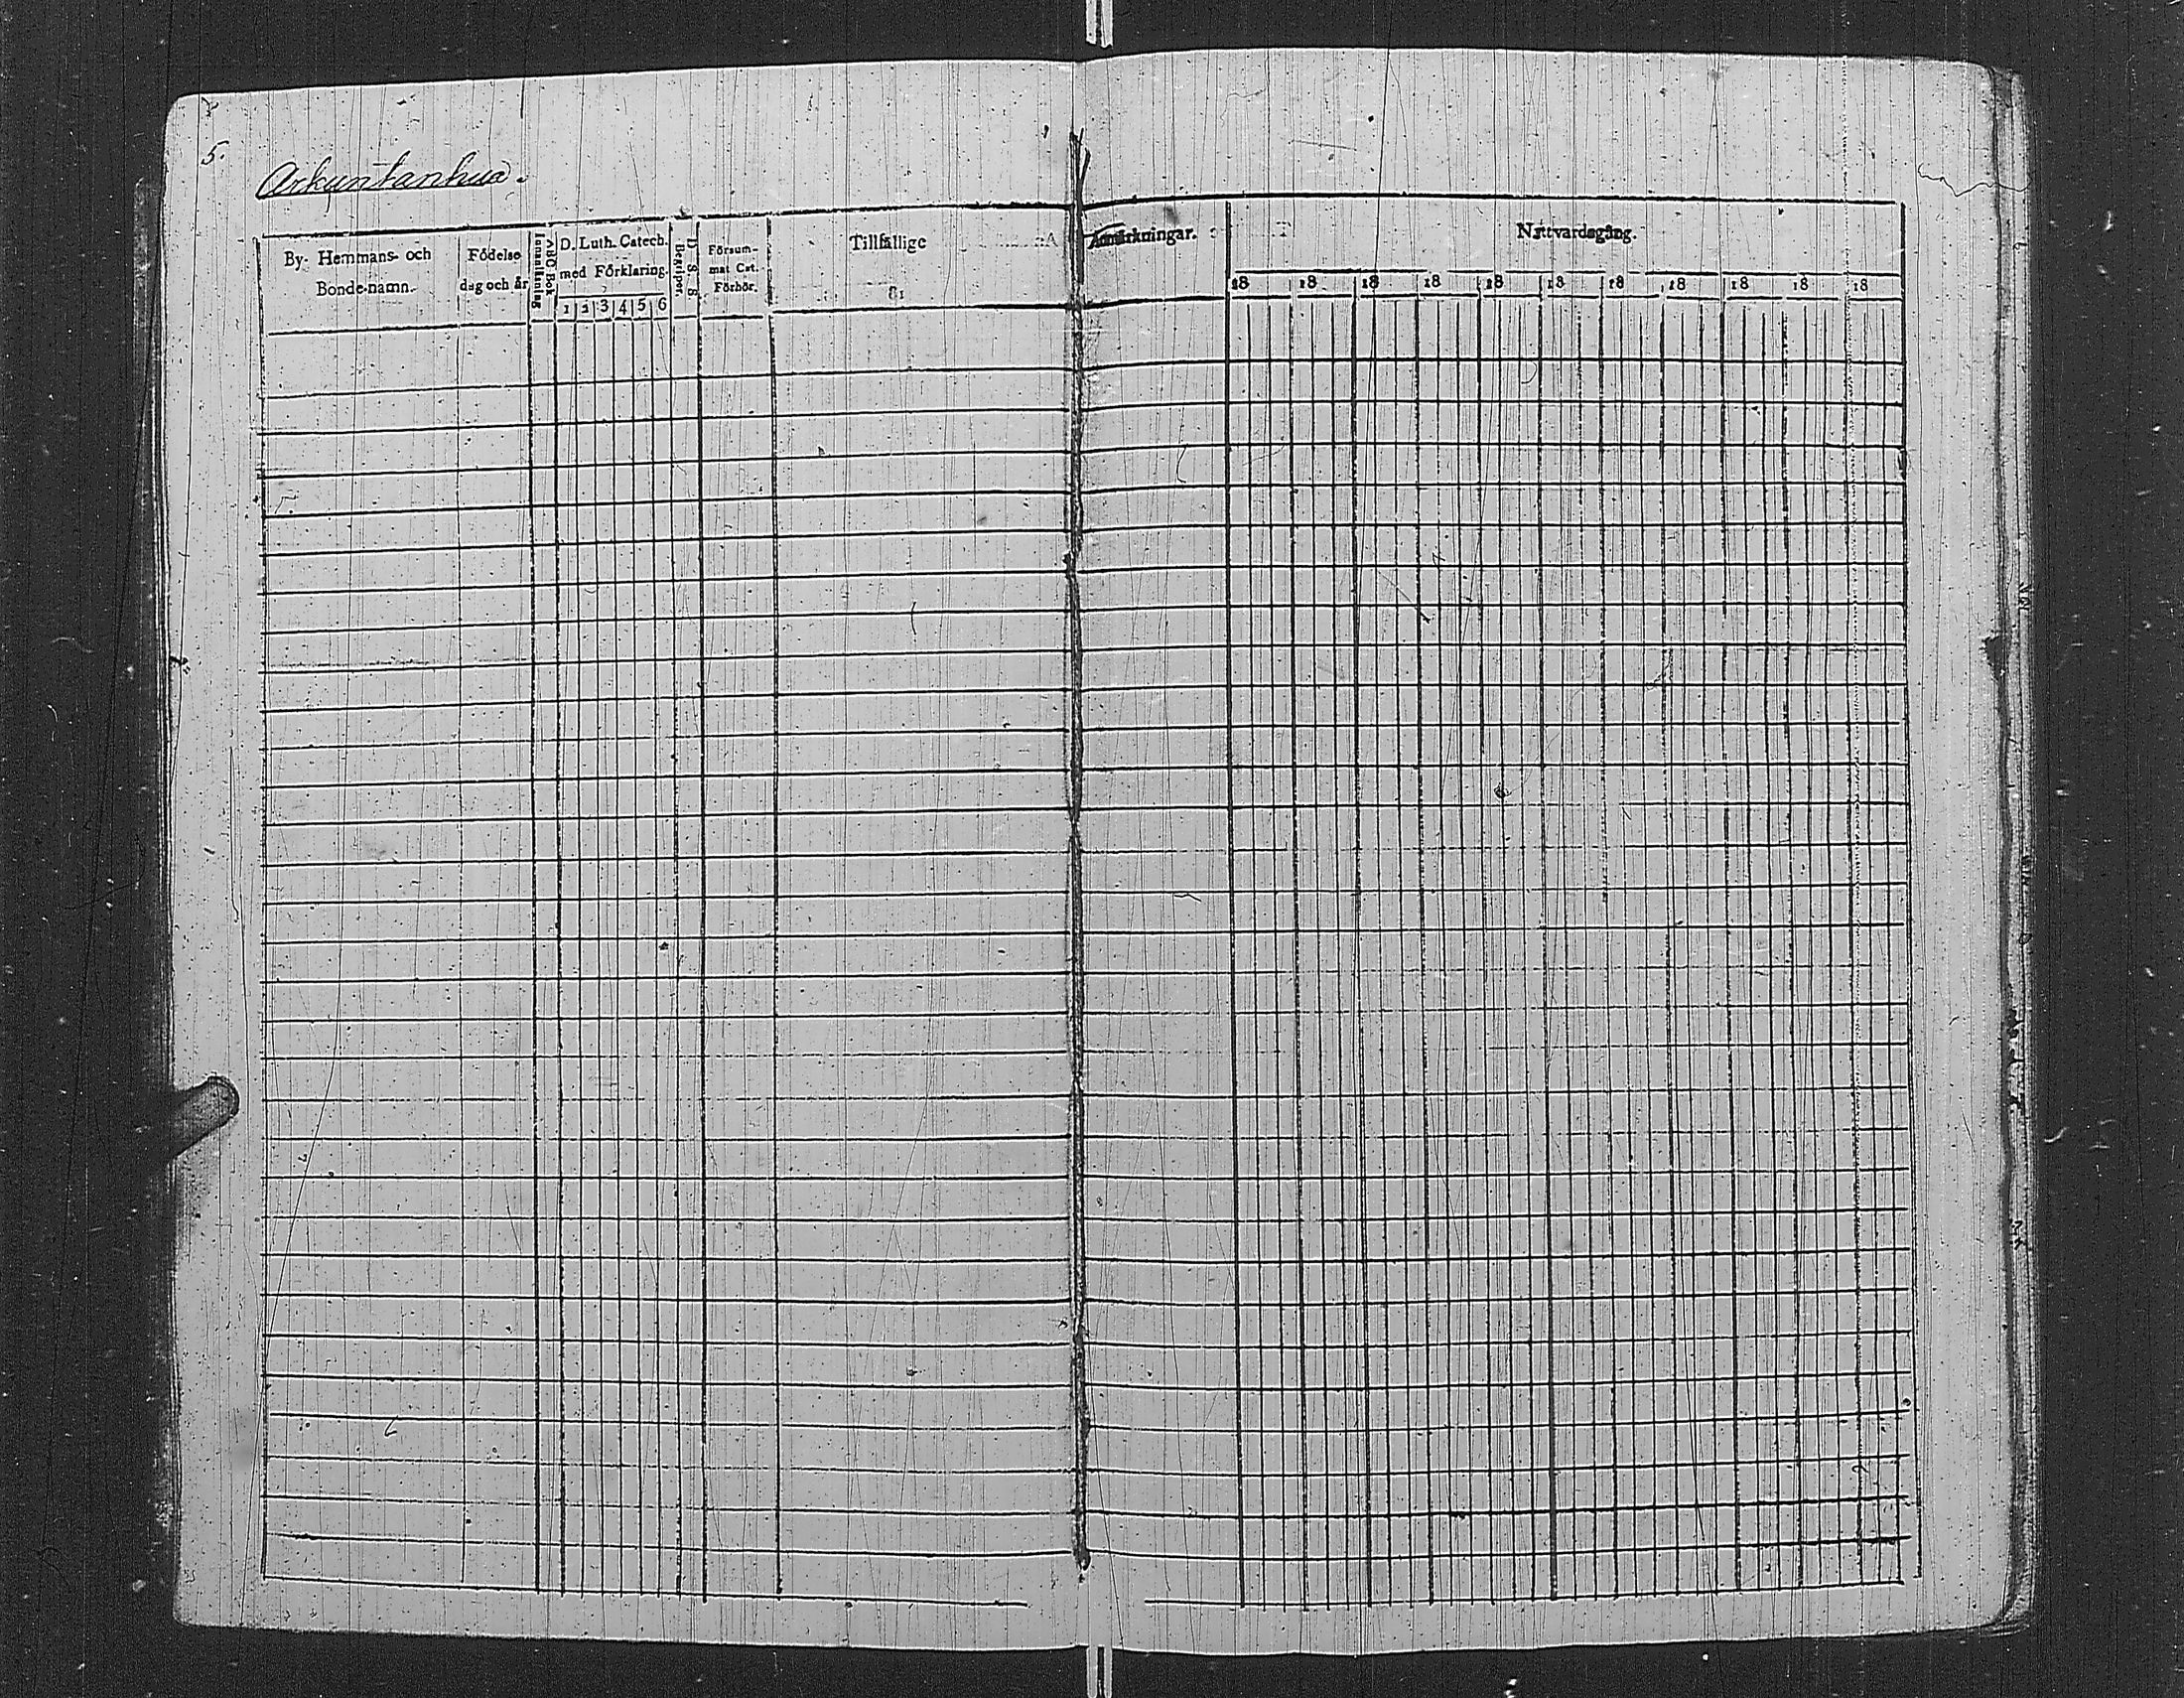 5.
Arkuntanhua.
By- Hemmans- och
Bonde-namn.
Födelse
dag och år
ABC Bok
Innanläsning
D. Luth. Catech.
med Förklaring.
1 2 3 4 5 6
D. S. S
Begriper.
Försum-
mat Cat.
Förhör.
Tillfällige
Anmärkningar.
Nattvardsgång.
18 18 18 18 18 18 18 18 18 18 18